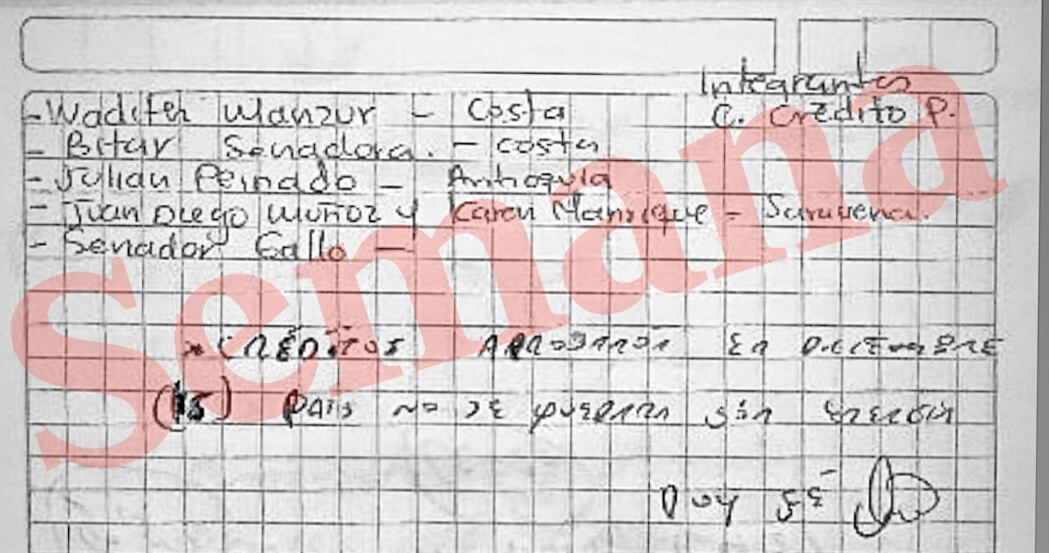 Integrantes
C. Crédito P.
- Wadith Manzur - Costa
- Bitar Senadora. - costa
- Julian Peinado - Antioquia
- Juan Diego Muñoz y Karen Manrique - Saravena.
- Senador Gallo -
* CRÉDITOS APROBARON EN DICIEMBRE
(15) PAIS NO SE SIN ENERGIA
DOY FE
Semana